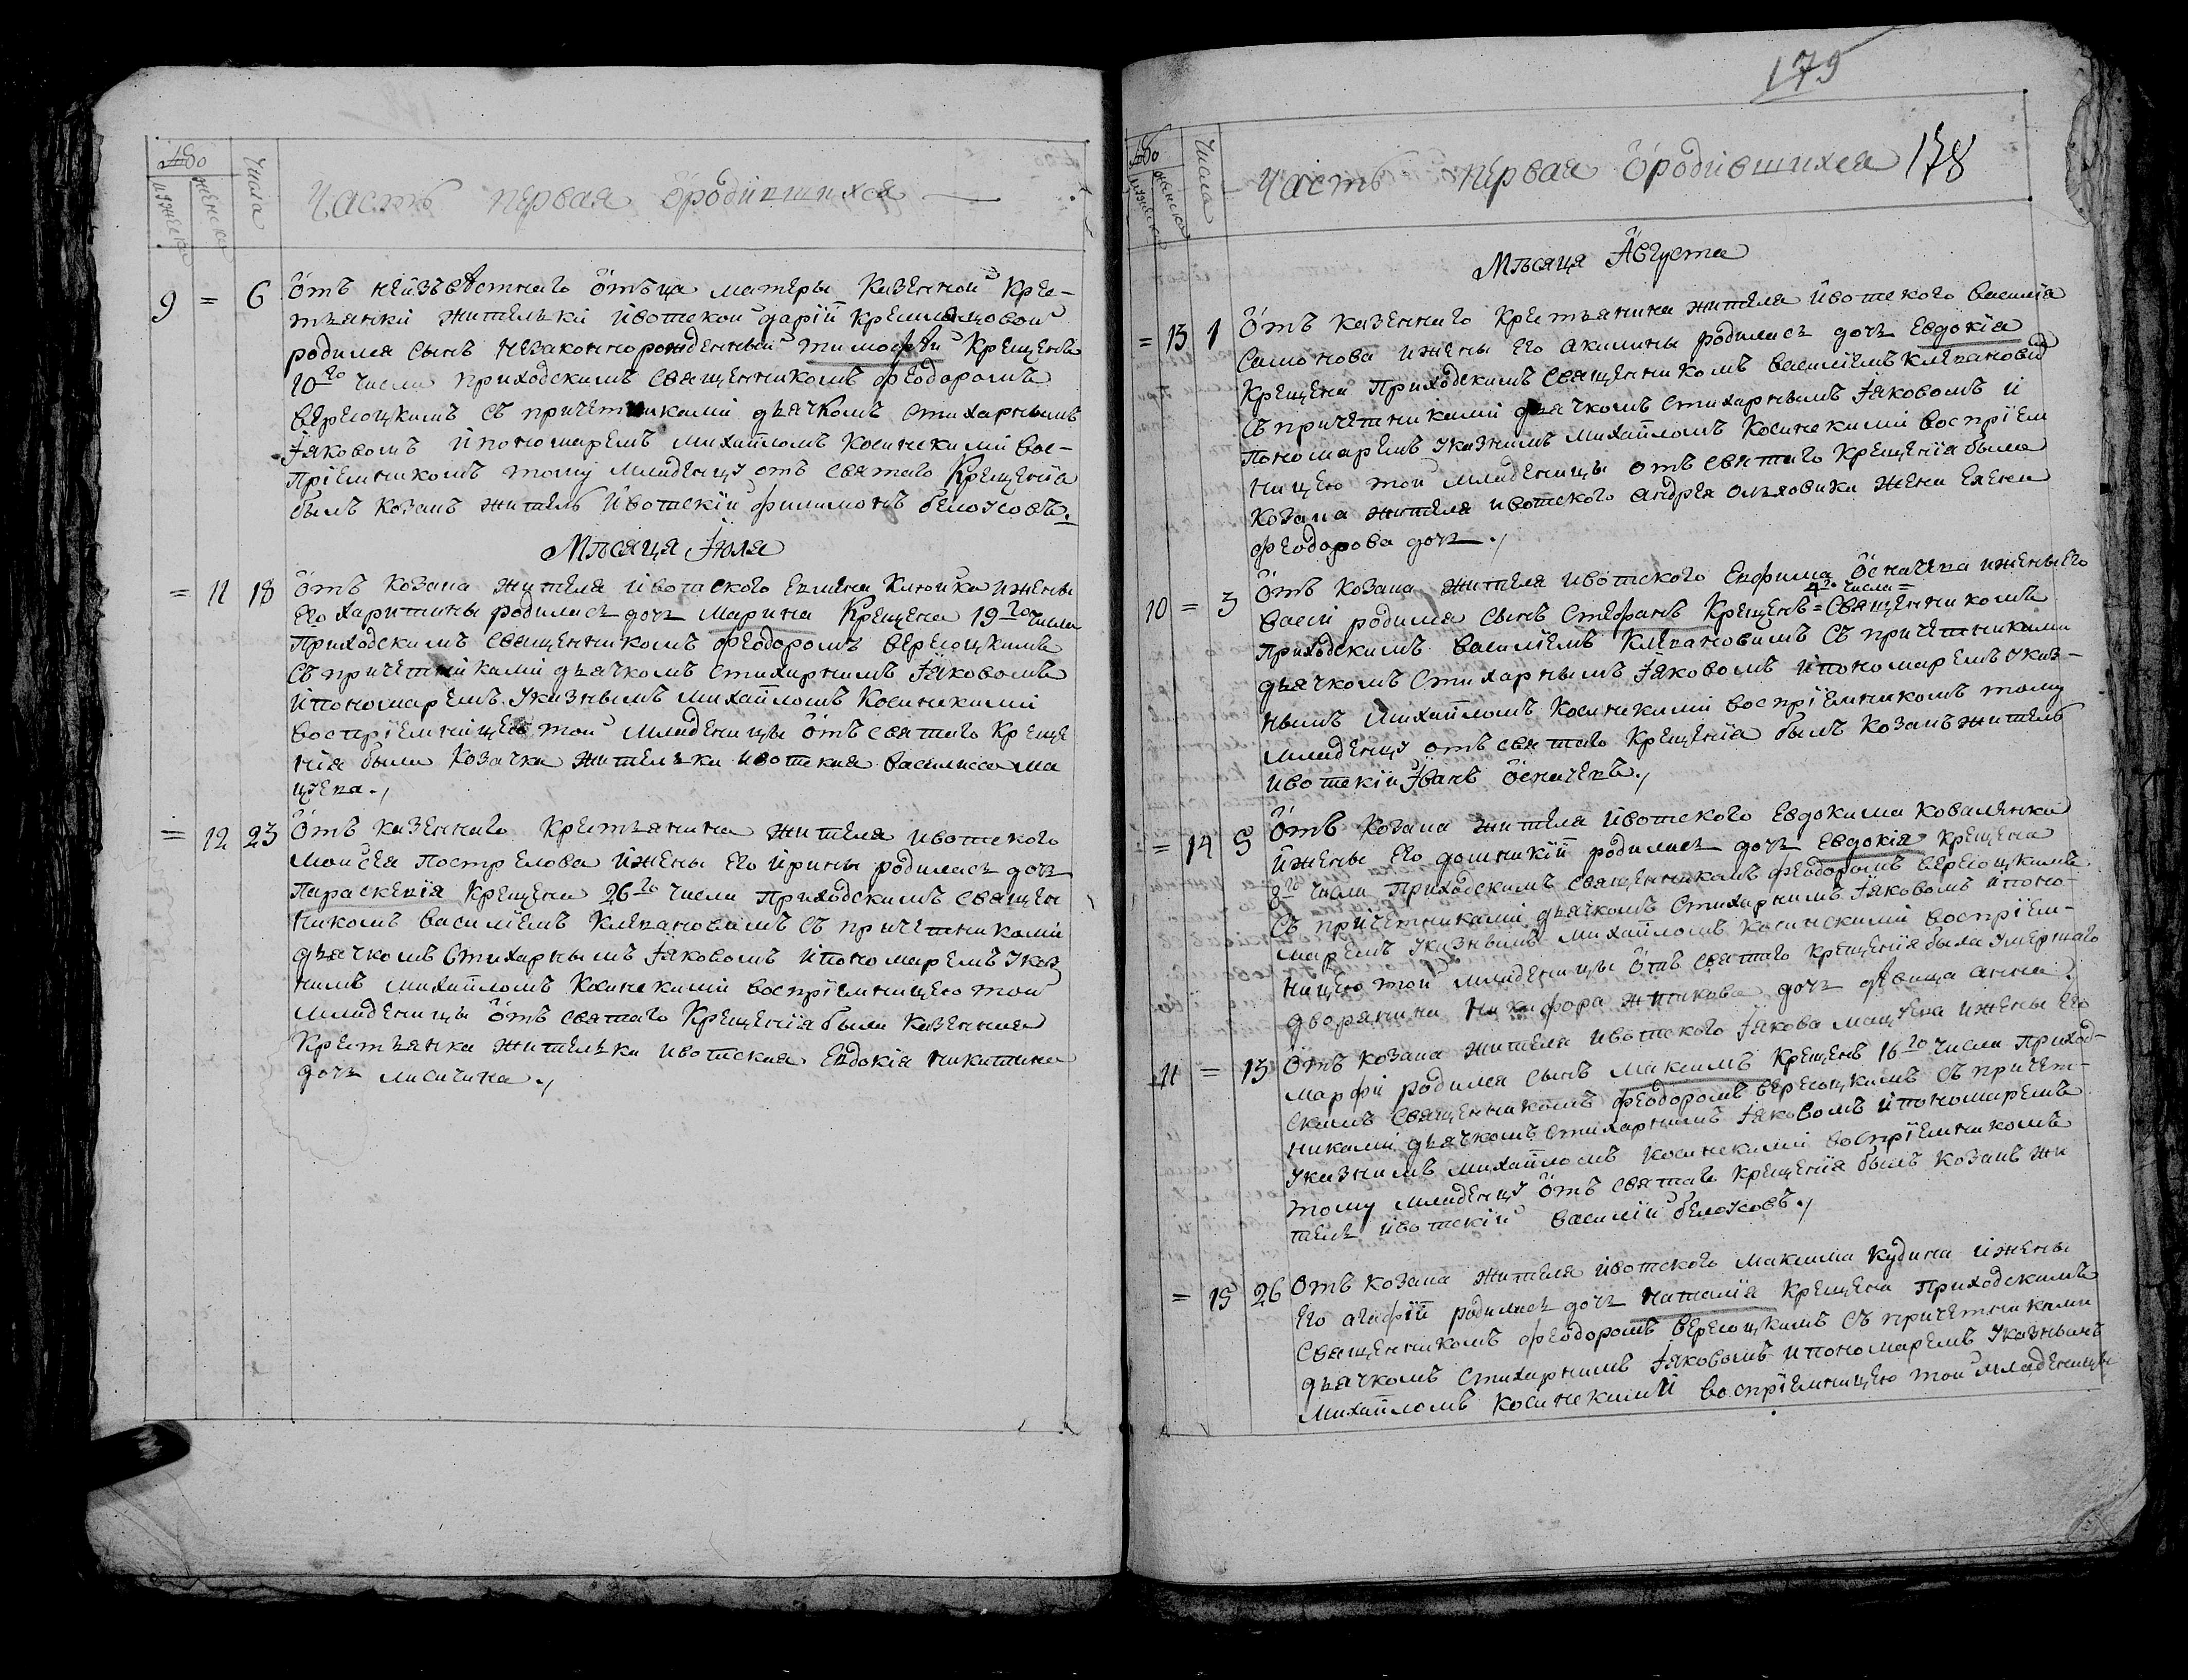 Або
мужеска
женска
числа
Часть первая ородившихся
9 = 6 Отъ неизъвѣстнаго отъца матеры казенной кре-
стьянки жителъки Ивотской Дарiи
родился сынъ незаконнорожденный Тимофѣй крещенъ
10го числа приходскимъ священникомъ Феодоромъ
Верегоцкимъ съ причетниками дьячкомъ стихарнымъ
Iяковомъ и пономаремъ Михаиломъ Косинскими вос-
прiемникомъ тому младенцу отъ святаго крещенiя
былъ козакъ житель Ивотскiй Филимонъ Белоусовъ.
Мѣсяця Iюля
= 11 18 Отъ козака жителя Ивотского Клюйка и жены
его Харитины родилась дочъ Марина крещена 19го числа
приходскимъ священникомъ Феодоромъ Верегоцкимъ
съ причетниками дьячкомъ стихарнимъ Iяковомъ
и пономаремъ указнымъ Михаиломъ Косинскими
воспрiемницею той младеницы отъ святаго креще
нiя была козачка жителъка Ивотская Василиса Ма
цуева.
= 12 23 Отъ казенного крестъянина жителя Ивотского
Моисея Пострелова и жены его Ирины родилась дочъ
Параскевiя крещена 26го числа приходскимъ священ
никомъ Василiемъ Клепановимъ съ причетниками
дьячкомъ стихарнымъ Iяковомъ и пономаремъ указ
нимъ Михаиломъ Косинскими воспрiемницею той
младеницы отъ святаго крещенiя была казенная
крестъянка жителъка Ивотская Евдокiя Никитина
дочъ Лисичина.
179
Або
мужеска
женска
числа
Часть первая ородившихся 178
Мѣсяця Августа
= 13 1 Отъ казенного крестъянина жителя Ивотского Василiя
Самонова и жены его Акилины родилась дочъ Евдокiя
крещена приходскимъ священникомъ Василiемъ Клепановим
съ причетниками дьячкомъ стихарнымъ Iяковомъ и
пономаремъ указнимъ Михаиломъ Косинскими воспрiем
ницею той младеницы отъ святаго крещенiя была
козака жителя Ивотского Андрея жена Елена
Феодорова дочъ.
10 = 3 Отъ козака жителя Ивотского Евфима Осначева и жены его
4го числа =
Васы родился сынъ Стефанъ крещенъ = священникомъ
приходскимъ Василiемъ Клепановимъ съ причетниками
дьячкомъ стихарнымъ Iяковомъ и пономаремъ указ-
нымъ Михаиломъ Косинскими воспрiемникомъ тому
младенцу отъ святаго крещенiя былъ козакъ житель
Ивотскiй Iванъ Осначевъ.
= 14 5 Отъ козака жителя Ивотского Евдокима Коваленка
и жены его Домникiи родилась дочъ Евдокiя крещена
8го числа приходскимъ священникомъ Феодоромъ Верегоцкимъ
съ причетниками дьячкомъ стихарнимъ Iяковомъ и поно-
маремъ указнымъ Михаиломъ Косинскими воспрiем-
ницею той младеницы отъ святаго крещенiя была умершаго
дворянина Никифора Жинкова дочъ дѣвица Анна.
11 = 13 Отъ козака жителя Ивотского Iякова Мацуева и жены его
Марфы родился сынъ Максимъ крещенъ 16го числа приход-
скимъ священникомъ Феодоромъ Верегоцкимъ съ причет-
никами дьячкомъ стихарнимъ Iяковомъ и пономаремъ
указнимъ Михаиломъ Косинскими воспрiемникомъ
тому младенцу отъ святаго крещенiя былъ козакъ жи
телъ Ивотскiй Василiй Белоусовъ.
= 15 26 Отъ козака жителя Ивотского Максима Кудина и жены
его Агафiи родилась дочъ Наталiя крещена приходскимъ
священникомъ Феодоромъ Верегоцкимъ съ причетниками
дьячкомъ стихарнимъ Iяковомъ и пономаремъ указнымъ
Михаиломъ Косинскими воспрiемницею той младеницы